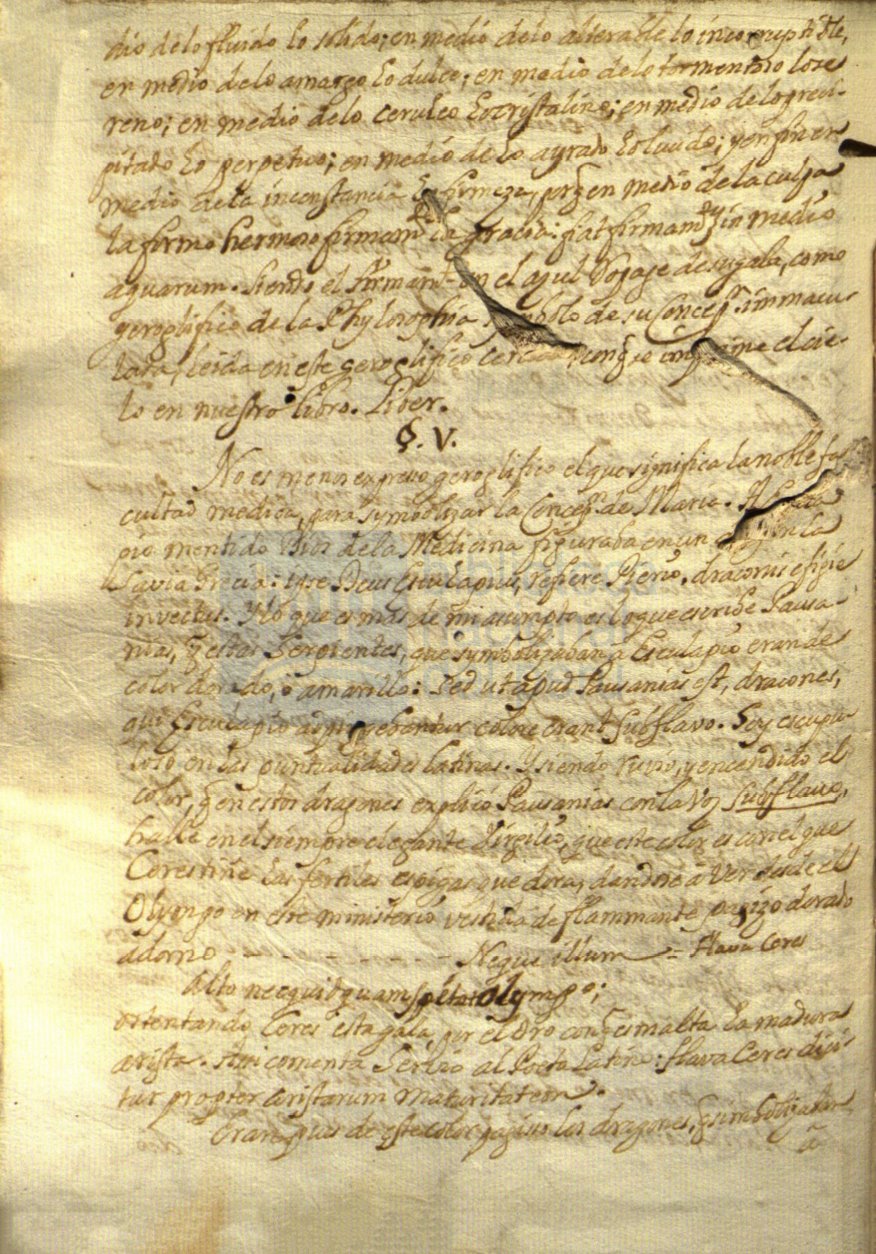 dio de lo fluido lo solido; en medio de lo alterable lo incorruptible,
en medio de lo amargo lo dulce; en medio de lo tormentoso lo se-
reno; en medio de lo ceruleo lo cristalino; en medio de lo preci-
pitado lo perpetuo; en medio de lo ayrado lo; y en fin en
medio de la inconstancia la firmeza, porq̃ en medio de la culpa
la firmo hermoso firmamto. la gracia: fiat firmamẽ. in medio
aquarum. Siendo el firmamto. en el azul ropaje de su gala, como
geroglifico de la Phylosophia symbolo de su Concepn. immacu-
lada, leida en este geroglifico con q̃ se imprime el cie-
lo en nuestro libro. Liber.
§. V.
No es menos expreso geroglifico el que significa la noble fa-
cultad medica, para symbolizar la Concepn. de Maria. A
pio mentido Dios de la Medicina figuraba en un en la
savia Grecia: ipse Deus Esculapius, refiere Pierio, draconis effigie
invectus. Y lo que es mas de mi asumpto es lo que escribe Pausa-
nias, q̃ estas Serpientes, que symbolizaban a Esculapio eran de
color dorado, ò amarillo: Sed ut apud Pausanias est, dracones,
qui Esculapio adpingebantur colore erant subflavo. Soy escrupu-
loso en las puntualidades latinas. Y siendo ruvio, y encendido el
color, q̃ en estos dragones explicó Pausanias con la voz subflavo,
hallè en el siempre elegante Virgilio, que este color es con el que
Ceres tiñe las fertiles espigas que dora, dandose à ver desde el
Olympo en este ministerio vestida de flammante pagizo dorado
adorno - - - - - - - Neque illum = Flava Ceres
alto necquidquam spectat Olympo;
ostentando Ceres esta gala, por el Oro con q̃ esmalta la madura
arista. Assi comenta Servio al Poeta Latino: flava Ceres dici-
tur propter aristarum maturitatem.
Eran pues de este color pagizo los dragones, q̃ simbolizaban
à